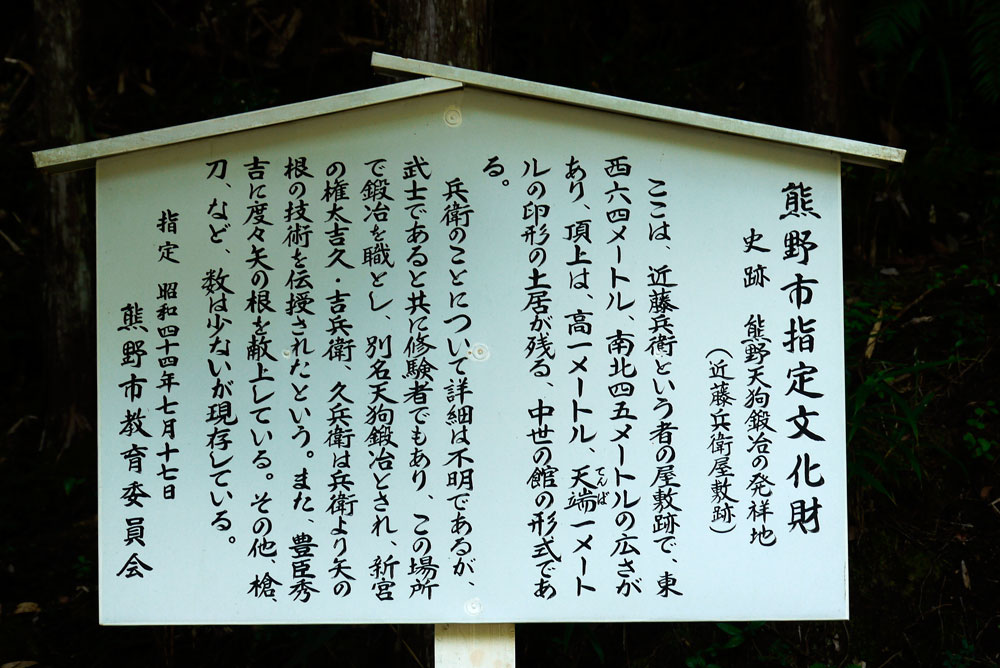 熊野市指定文化財
史跡　熊野天狗鍛冶の発祥地
（近藤兵衛屋敷跡）
ここは、近藤兵衛という者の屋敷跡で、東
西六四メートル、南北四五メートルの広さが
あり、頂上は、高一メートル、天端一メート
てんば
ルの印形の土居が残る、中世の館の形式であ
る。
兵衛のことについて詳細は不明であるが、
武士であると共に修験者でもあり、この場所
で鍛冶を職とし、別名天狗鍛冶とされ、新宮
の権太吉久・吉兵衛、久兵衛は兵衛より矢の
根の技術を伝授されたという。また、豊臣秀
吉に度々矢の根を献上している。その他、槍、
刀、など、数は少ないが現存している。
指定　昭和四十四年七月十七日
熊野市教育委員会